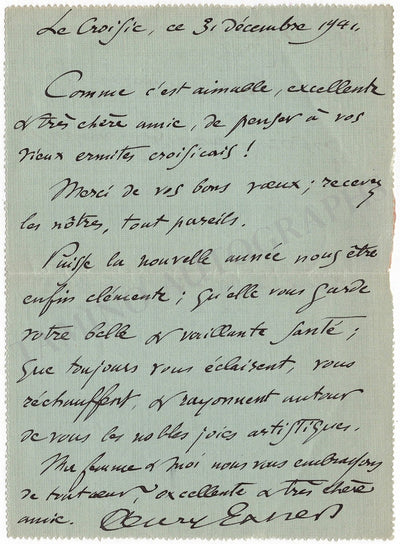 Le Croisic, ce 31 décembre 1941.
Comme c'est aimable, excellente
& très chère amie, de penser à vos
vieux ermites croisicais !
Merci de vos bons vœux ; recevez
les nôtres, tout pareils.
Puisse la nouvelle année nous être
enfin clémente ; qu'elle vous garde
votre belle & vaillante santé ;
que toujours vous éclairent, vous
réchauffent, & rayonnent autour
de vous les nobles joies artistiques.
Ma femme & moi nous vous embrassons
de tout cœur, excellente & très chère
amie. Henry